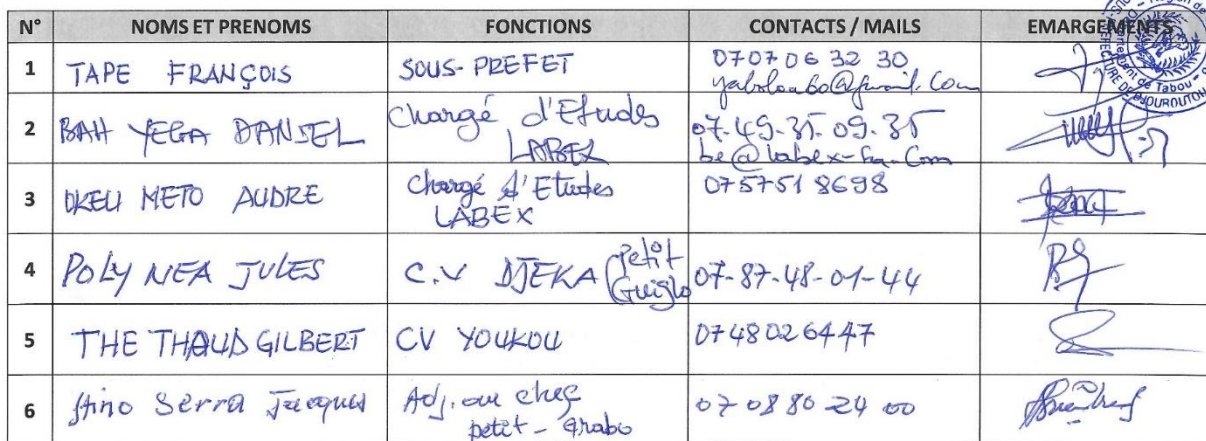 N° NOMS ET PRENOMS FONCTIONS CONTACTS / MAILS EMARGEMENTS
1 TAPE FRANÇOIS SOUS-PREFET 07 07 06 32 30
2 BAH YEGA DANIEL Chargé d'Etudes LABEX 07.49.35.09.35
3 OKEU METO AUDRE Chargé d'Etudes LABEX 0757518698
4 POLY NEA JULES C.V DJEKA (Petit Guiglo) 07-87-48-01-44
5 THE THAUD GILBERT CV YOUKOU 0748026447
6 Serra Jacques Adj. au chef petit-Grabo 07 08 80 24 00
de Tabou